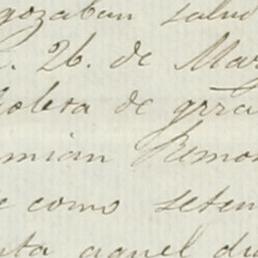 gozaban salud
26. de Mar
de grra
mian Remon
como seten
aquel di